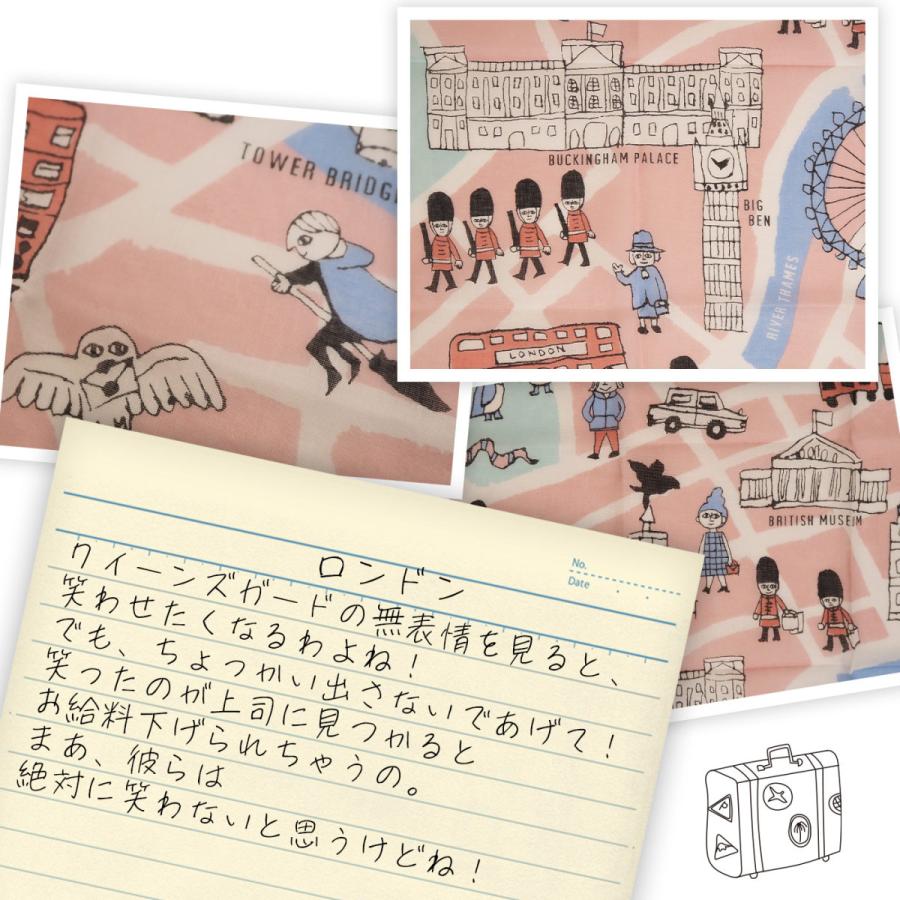 TOWER BRIDG
BUCKINGHAM PALACE
BIG
BEN
RIVER THAMES
LONDON
BRITISH MUSEUM
No.
Date
ロンドン
クイーンズガードの無表情を見ると、
笑わせたくなるわよね！
でも、ちょっかい出さないであげて！
笑ったのが上司に見つかると
お給料下げられちゃうの。
まあ、彼らは
絶対に笑わないと思うけどね！